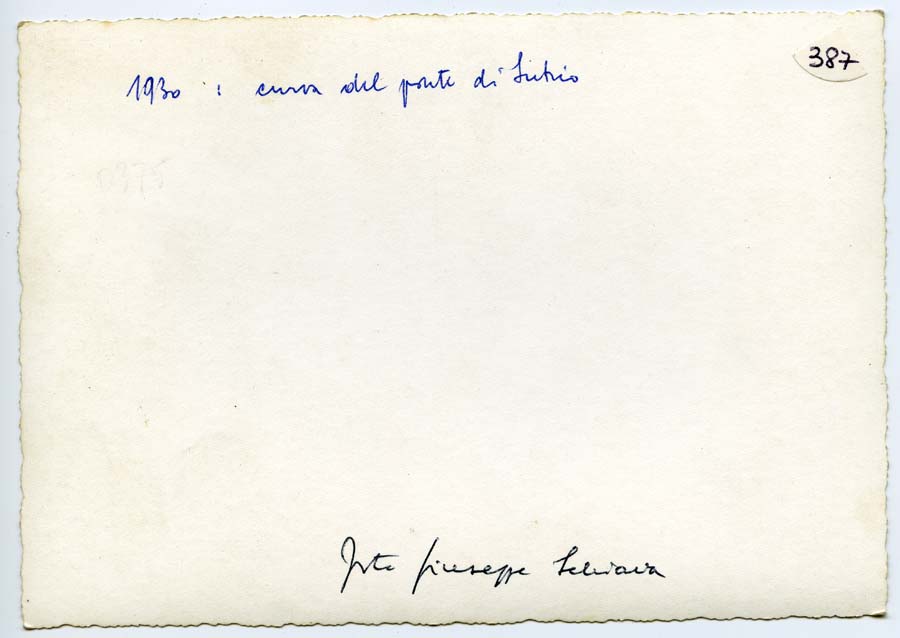 387
1930 : curva del ponte di Sutrio
0375
Foto Giuseppe